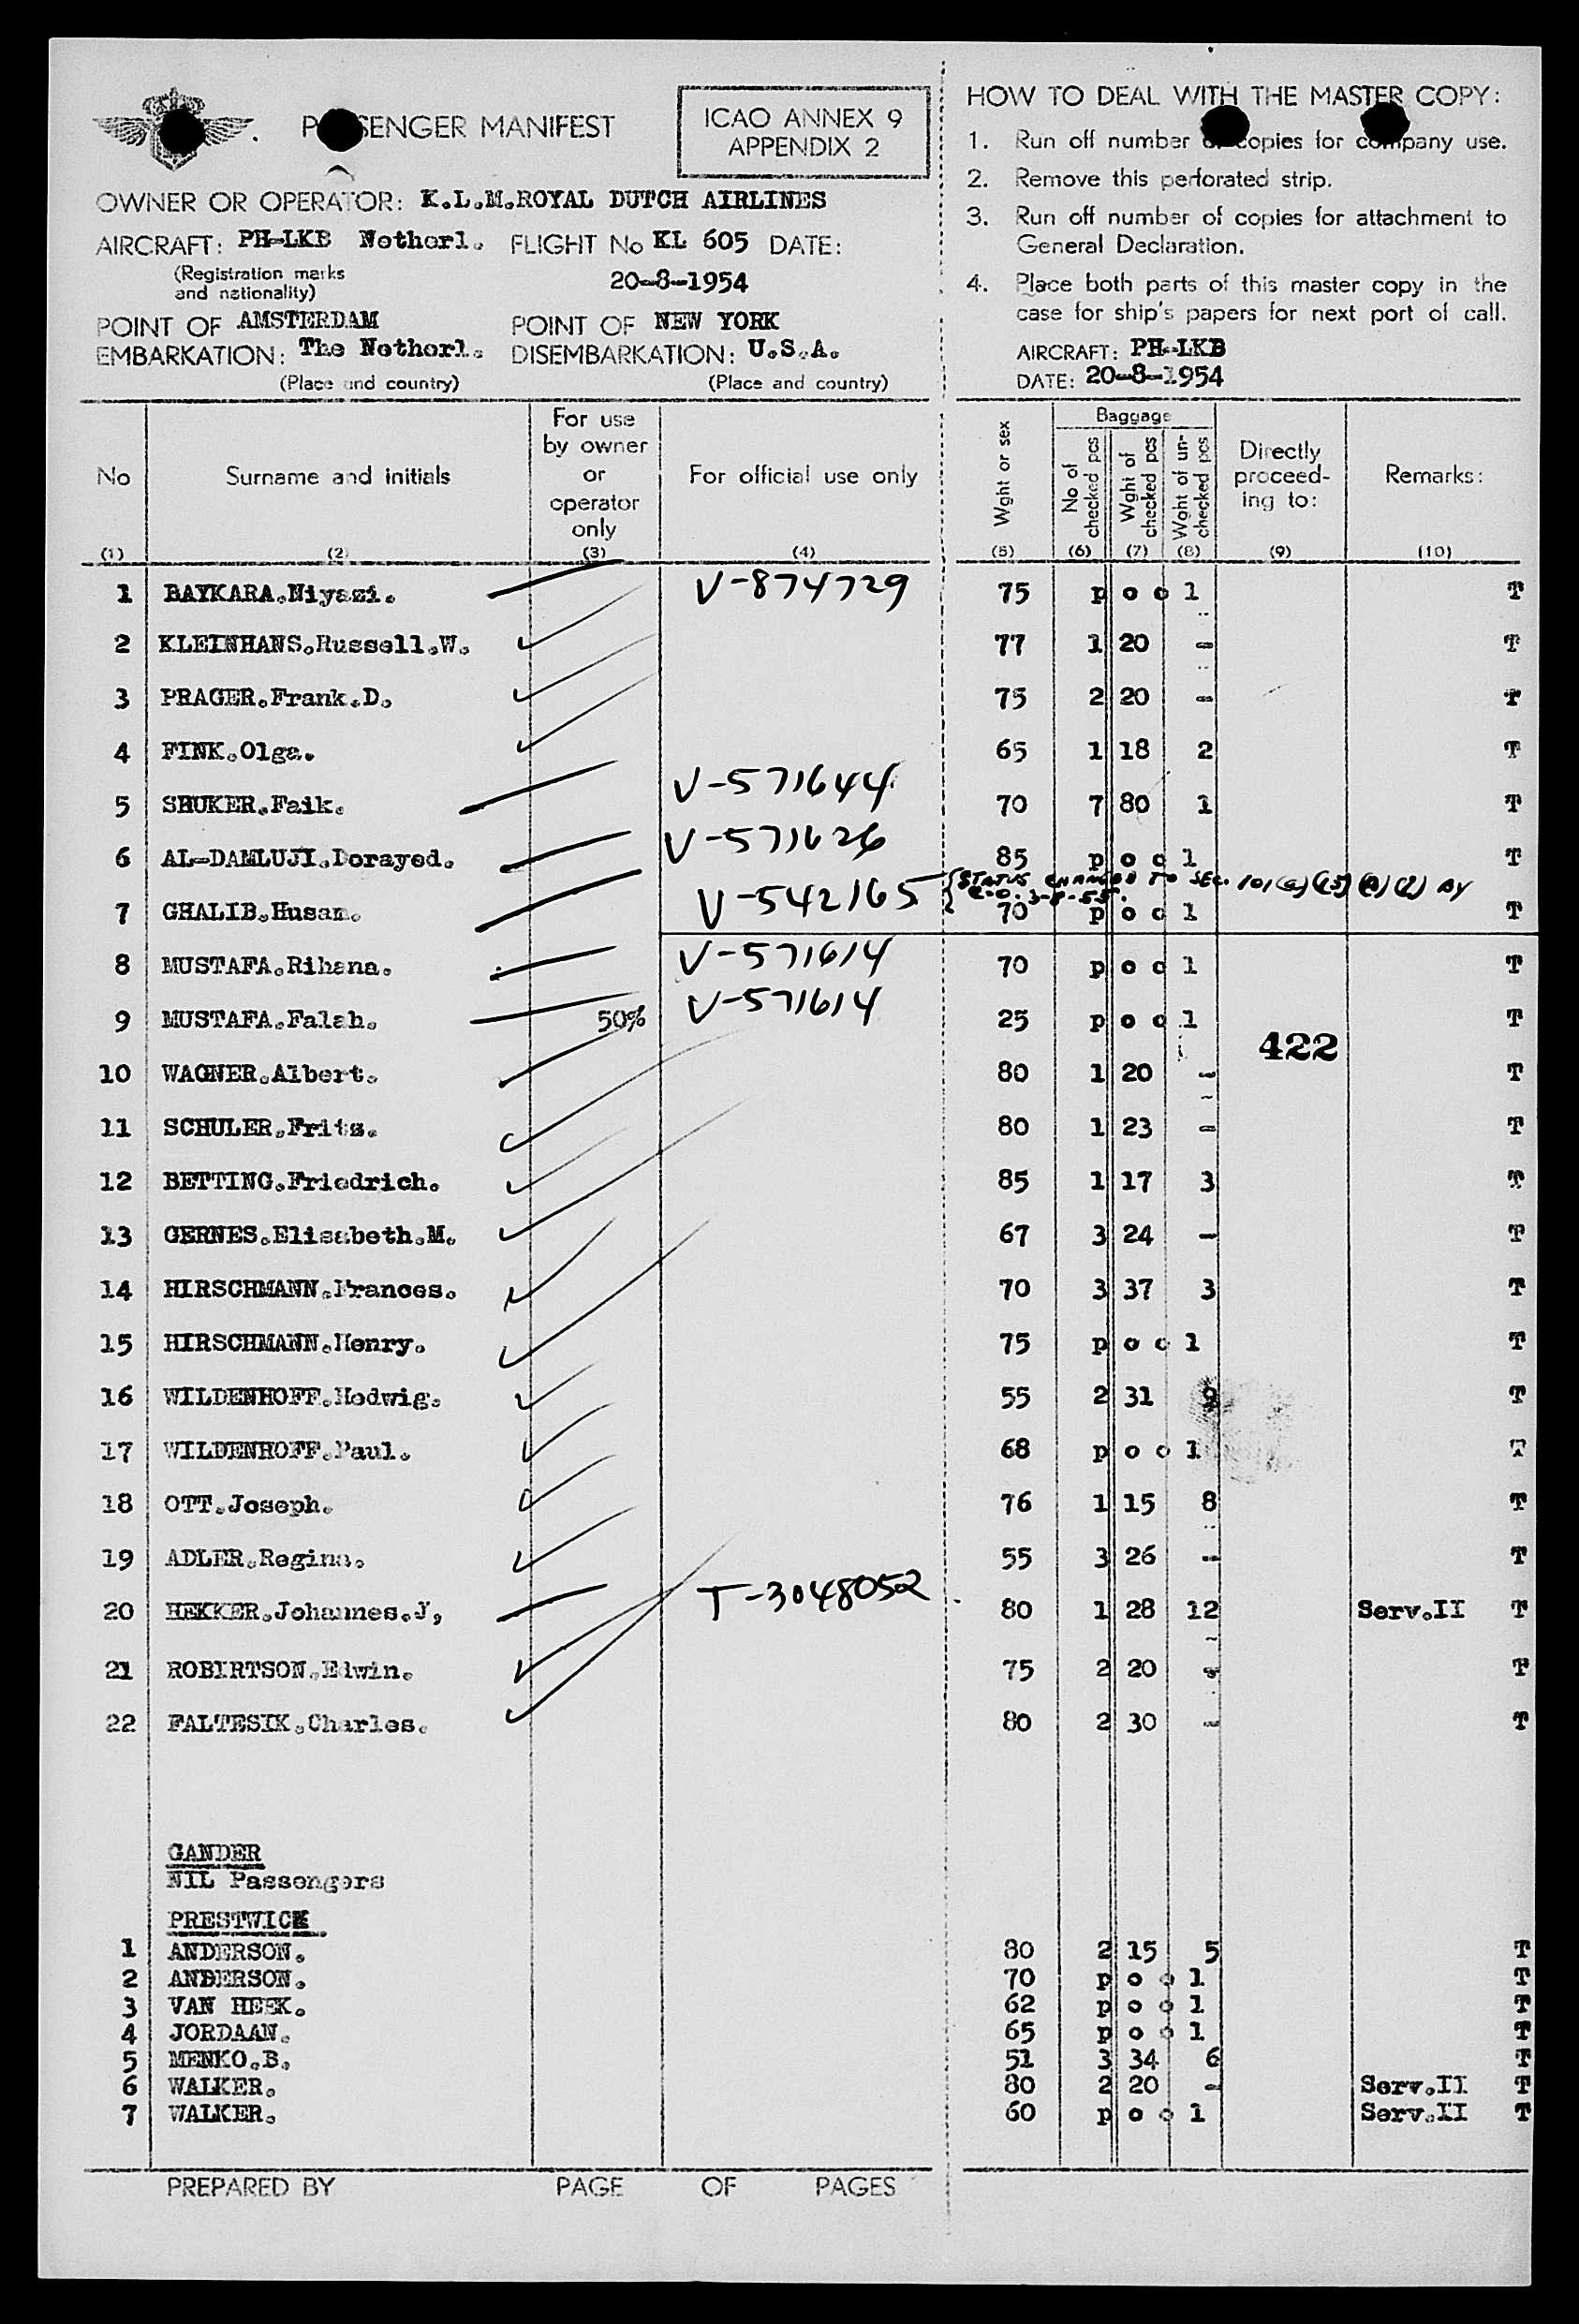 PASSENGER MANIFEST
ICAO ANNEX 9
APPENDIX 2
OWNER OR OPERATOR: K.L.M.ROYAL DUTCH AIRLINES
AIRCRAFT: PH-LKB Netherl. FLIGHT No KL 605 DATE:
(Registration marks
and nationality)
20-8-1954
POINT OF AMSTERDAM POINT OF NEW YORK
EMBARKATION: The Netherl. DISEMBARKATION: U.S.A.
(Place and country) (Place and country)
HOW TO DEAL WITH THE MASTER COPY:
1. Run off number of copies for company use.
2. Remove this perforated strip.
3. Run off number of copies for attachment to
General Declaration.
4. Place both parts of this master copy in the
case for ship's papers for next port of call.
AIRCRAFT: PH-LKB
DATE: 20-8-1954
No
(1)
Surname and initials
(2)
For use
by owner
or
operator
only
(3)
For official use only
(4)
Wght or sex
(5)
Baggage
No of
checked pcs
(6)
Wght of
checked pcs
(7)
Wght of un-
checked pcs
(8)
Directly
proceed-
ing to:
(9)
Remarks:
(10)
1 BAYKARA.Niyazi. V-874729 75 p o o l T
2 KLEINHANS.Russell.W. 77 1 20 - T
3 PRAGER.Frank.D. 75 2 20 - T
4 FINK.Olga. 65 1 18 2 T
5 SHUKER.Faik. V-571644 70 7 80 1 T
6 AL-DAMLUJI.Dorayed. V-571626 85 p o o l T
{STATUS CHANGED TO SEC. 101(a)(15)(A)(2) BY
C.O. 3-8-55.
7 GHALIB.Husam. V-542165 70 p o o l T
8 MUSTAFA.Rihana. V-571614 70 p o o l T
9 MUSTAFA.Falah. 50% V-571614 25 p o o l T
422
10 WAGNER.Albert. 80 1 20 - T
11 SCHULER.Frits. 80 1 23 - T
12 BETTING.Friedrich. 85 1 17 3 T
13 GERNES.Elisabeth.M. 67 3 24 - T
14 HIRSCHMANN.Frances. 70 3 37 3 T
15 HIRSCHMANN.Henry. 75 p o o l T
16 WILDENHOFF.Hedwig. 55 2 31 9 T
17 WILDENHOFF.Paul. 68 p o o l T
18 OTT.Joseph. 76 1 15 8 T
19 ADLER.Regina. 55 3 26 - T
20 HEKKER.Johannes.J, T-3048052 80 1 28 12 Serv.II T
21 ROBERTSON.Edwin. 75 2 20 - T
22 FALTESIK.Charles. 80 2 30 - T
GANDER
NIL Passengers
PRESTWICK
1 ANDERSON. 80 2 15 5 T
2 ANDERSON. 70 p o o l T
3 VAN HEEK. 62 p o o l T
4 JORDAAN. 65 p o o l T
5 MENKO.B. 51 3 34 6 T
6 WALKER. 80 2 20 - Serv.II T
7 WALKER. 60 p o o l Serv.II T
PREPARED BY PAGE OF PAGES